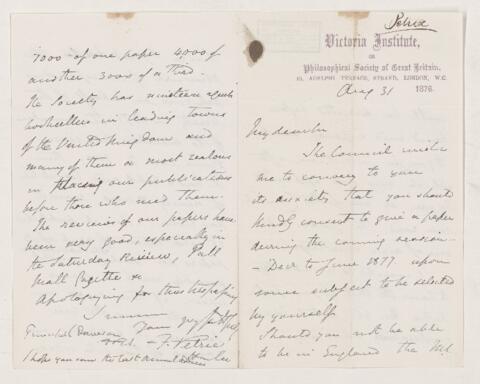 Petrie
Victoria Institute,
OR
Philosophical Society of Great Britain,
10, ADELPHI TERRACE, STRAND, LONDON, W.C.
Aug 31 1876.
My dear Sir
The Council wish
me to convey to you
its anxiety that you should
kindly consent to give a paper
during the coming session
– Decr to June 1877 upon
some subject to be selected
by yourself
Should you not be able
to be in England the
7000 of one paper 4,000 of
another 3000 of a third.
The Society has nineteen agents
booksellers in leading towns
of the United Kingdom and
many of them are most zealous
in placing our publications
before those who need them.
The reviews of our papers have
been very good, especially in
the Saturday Review, Pall
Mall Gazette &c
Apologizing for thus trespassing
Principal Dawson Yours very
F. Petrie
I hope you saw the last Annual Address